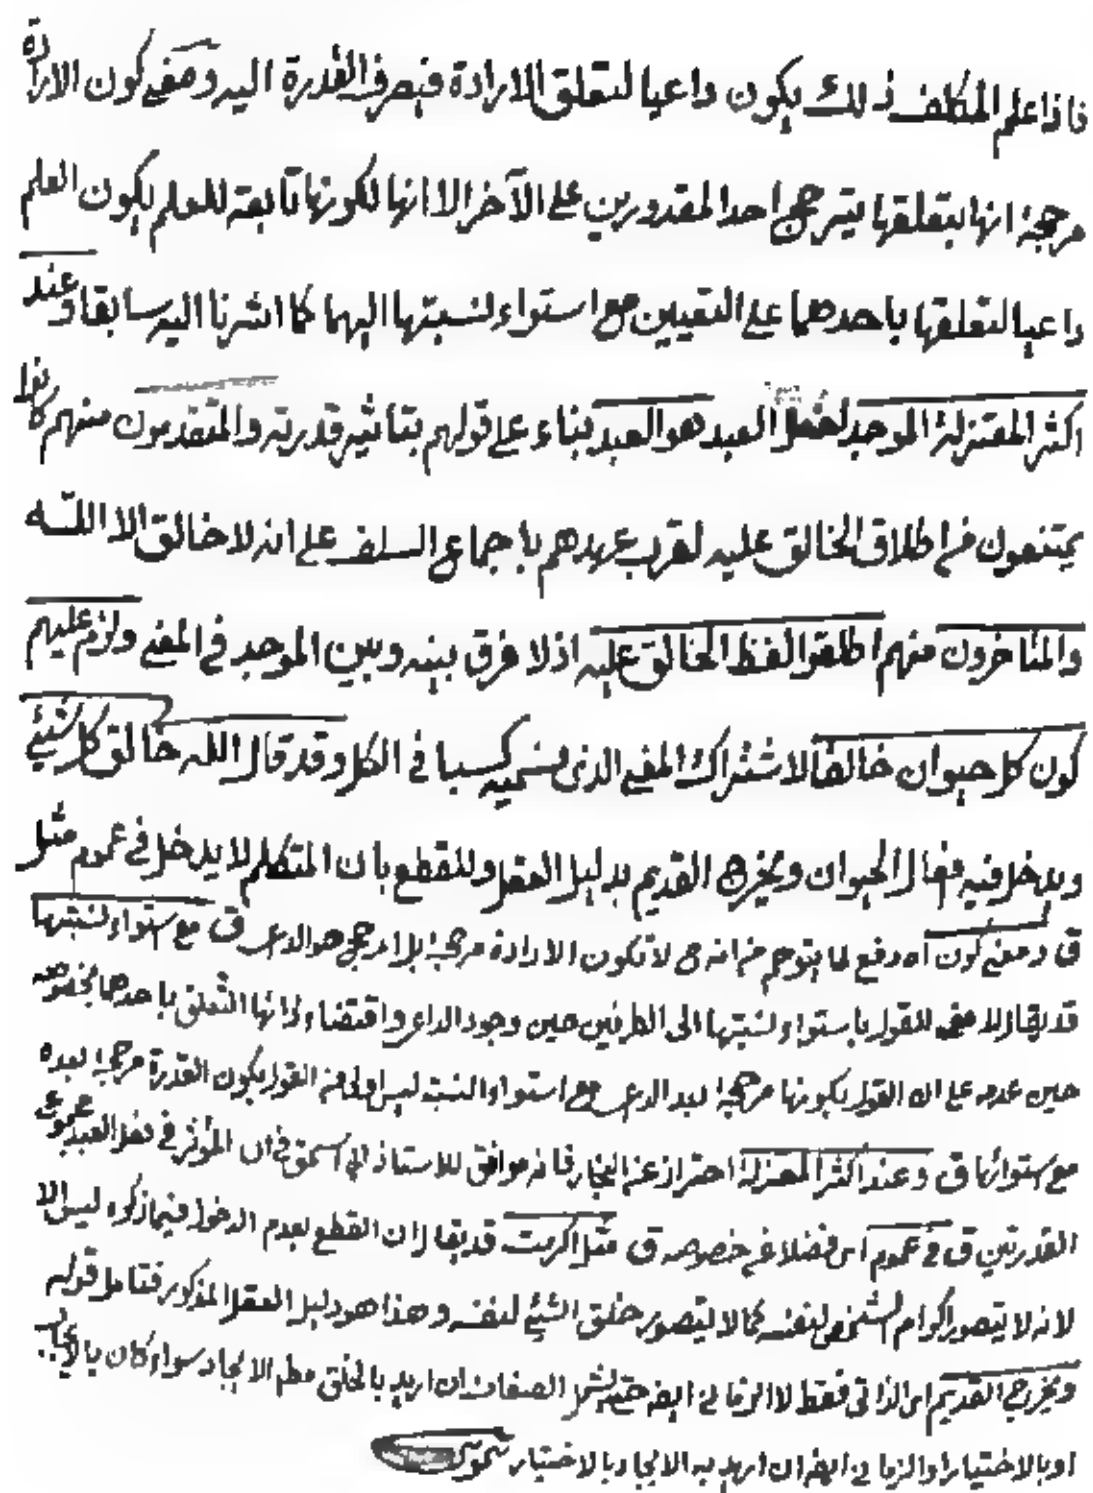 فاذا علم المكلف ذلك يكون داعيا لتعلق الارادة فيصرف القدرة اليه ومعنى كون الارادة
مرجحة انها بتعلقها يترجح احد المقدورين على الآخر الا انها لكونها تابعة للعلم يكون العلم
داعيا لتعلقها باحدهما على التعيين مع استواء نسبتها اليهما كما اشرنا اليه سابقا وعند
اكثر المعتزلة الموجد لفعل العبد هو العبد بناء على قولهم بتاثير قدرته والمتقدمون منهم كانوا
يمتنعون من اطلاق الخالق عليه لقرب عهدهم باجماع السلف على انه لا خالق الا الله
والمتاخرون منهم اطلقوا لفظ الخالق عليه اذ لا فرق بينه وبين الموجد في المعنى ولزم عليهم
كون كل حيوان خالقا لاشتراك المعنى الذي نسميه كسبا في الكل وقد قال الله خالق كل شيئ
ويدخل فيه افعال الحيوان ويخرج القديم بدليل العقل وللقطع بان المتكلم لا يدخل في عموم مثل
ق ومعنى كون اه دفع لما يتوهم من انه ح لا تكون الارادة مرجحة بل المرجح هو الداعى ق مع استواء نسبتها
قد يقال لا معنى للقول باستواء نسبتها الى الطرفين حين وجود الداعى واقتضاء ذاتها التعلق باحدهما بخصوصه
حين عدمه على ان القول بكونها مرجحة بعد الداعى مع استواء النسبة ليس اولى من القول بكون القدرة مرجحة بعده
مع استوائها ق وعند اكثر المعتزلة احتراز عن النجار فانه موافق للاستاذ ابى اسحق في ان المؤثر في فعل العبد مجموع
القدرتين ق في عموم اى فضلا عن خصوصه ق مثل اكرمت قد يقال ان القطع بعدم الدخول فيما ذكره ليس الا
لانه لا يتصور اكرام الشخص لنفسه كما لا يتصور خلق الشيئ لنفسه وهذا هو دليل العقل المذكور فتامل قوله
ويخرج القديم اى الذاتى فقط لا الزمانى ايضا حتى يشمل الصفات ان اريد بالخلق مطلق الايجاد سواء كان بالايجاب
او بالاختيار او الزمانى ايضا ان اريد به الايجاد بالاختيار